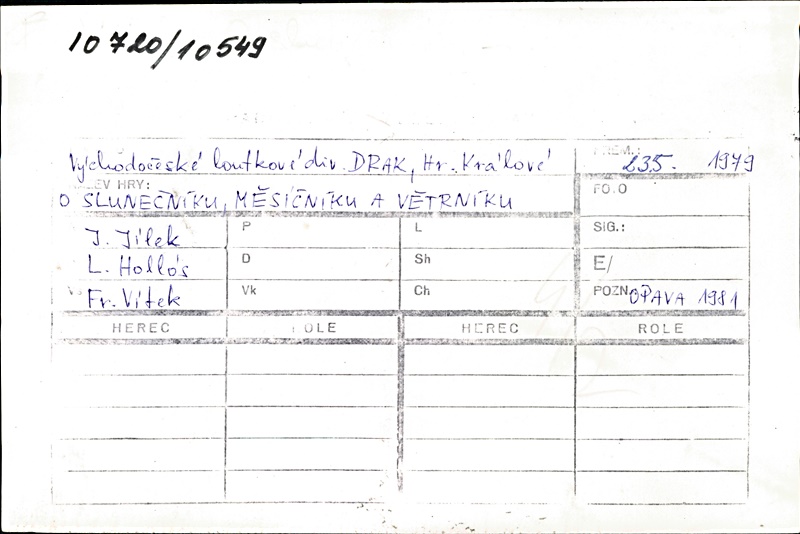 10720/10549
Východočeské loutkové div. DRAK, Hr. Králové
PREM.: 23.5. 1979
O SLUNEČNÍKU, MĚSÍČNÍKU A VĚTRNÍKU
HRY:
J. Jílek P L SIG.:
L. Hollós D Sh E/
Fr. Vítek Vk Ch POZN. OPAVA 1981
HEREC ROLE HEREC ROLE